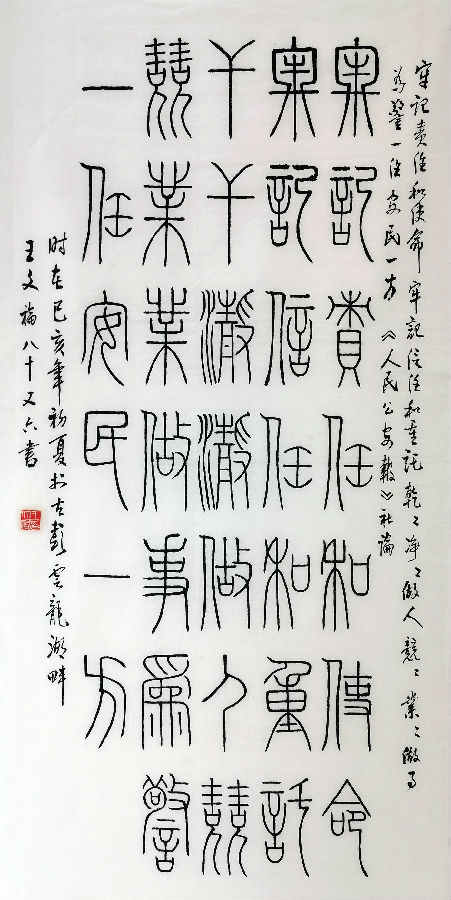 牢記责任和使命牢記信任和重託乾々淨々做人兢々業々做事
為警一任安民一方《人民公安報》社論
牢記責任和使命
牢記信任和重託
干干淨淨做人兢
兢業業做事為警
一任安民一方
时在己亥年初夏于古彭雲龍湖畔
王文福八十又六書